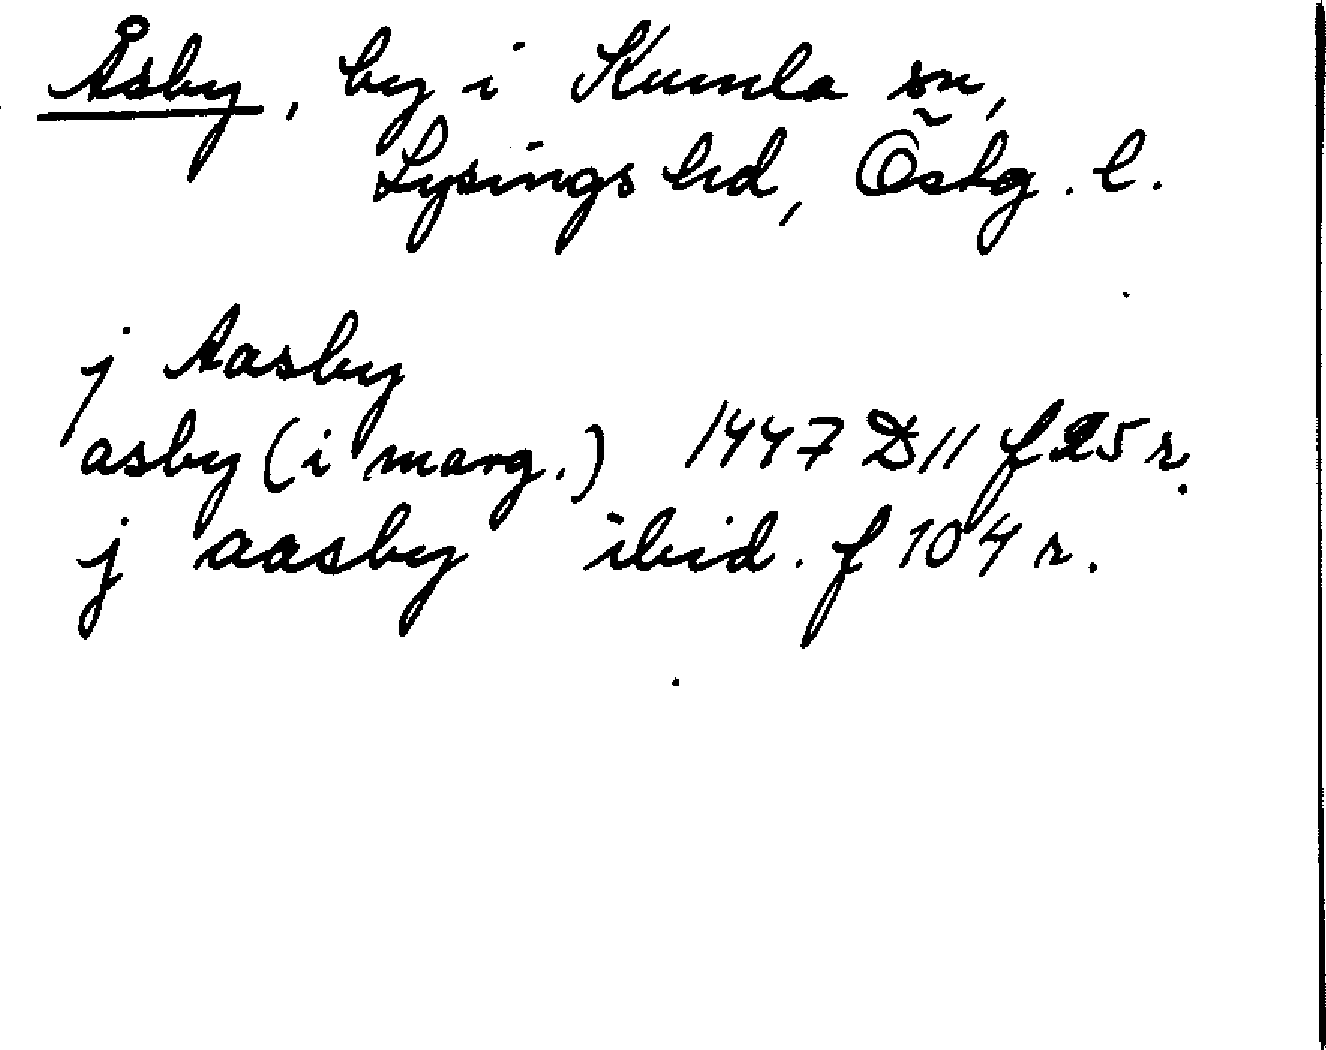 Åsby, by i Kumla sn,
Lysings hd, Östg. l.
j Aasby
asby (i marg.) 1447 D11 f 25 r.
j aasby ibid. f 104 r.